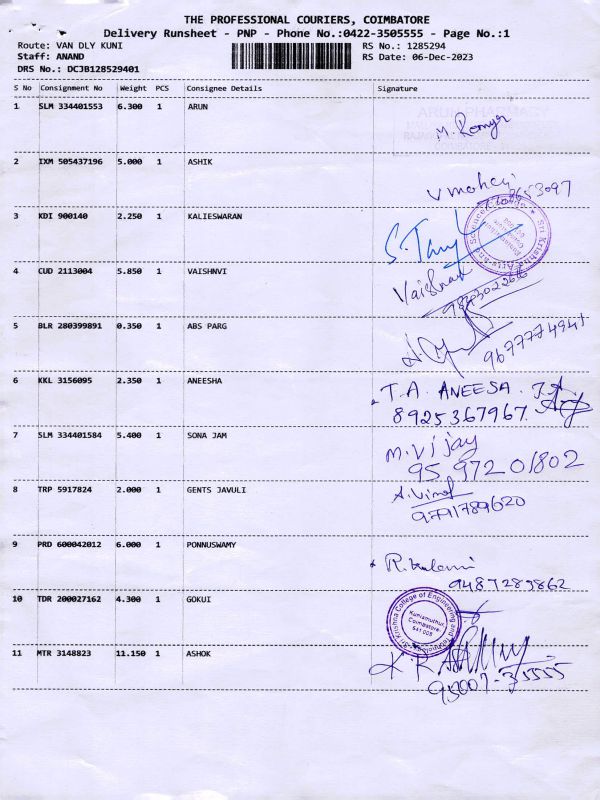 THE PROFESSIONAL COURIERS, COIMBATORE
Delivery Runsheet - PNP - Phone No.:0422-3505555 - Page No.:1
Route: VAN DLY KUNI RS No.: 1285294
Staff: ANAND RS Date: 06-Dec-2023
DRS No.: DCJB128529401
S No Consignment No Weight PCS Consignee Details Signature
1 SLM 334401553 6.300 1 ARUN
2 IXM 505437196 5.000 1 ASHIK
3 KDI 900140 2.250 1 KALIESWARAN
4 CUD 2113004 5.850 1 VAISHNVI
Vaishnavi
5 BLR 280399891 0.350 1 ABS PARG
9677774941
6 KKL 3156095 2.350 1 ANEESHA
T.A. ANEESA.
8925367967.
7 SLM 334401584 5.400 1 SONA JAM
M.Vijay
95 972 01802
8 TRP 5917824 2.000 1 GENTS JAVULI
A.Vimal
9791789620
9 PRD 600042012 6.000 1 PONNUSWAMY
9487289862
10 TDR 200027162 4.300 1 GOKUI
Sri Krishna College of Engineering and Technology
Kuniamuthur
Coimbatore
641 008
11 MTR 3148823 11.150 1 ASHOK
95007-35555